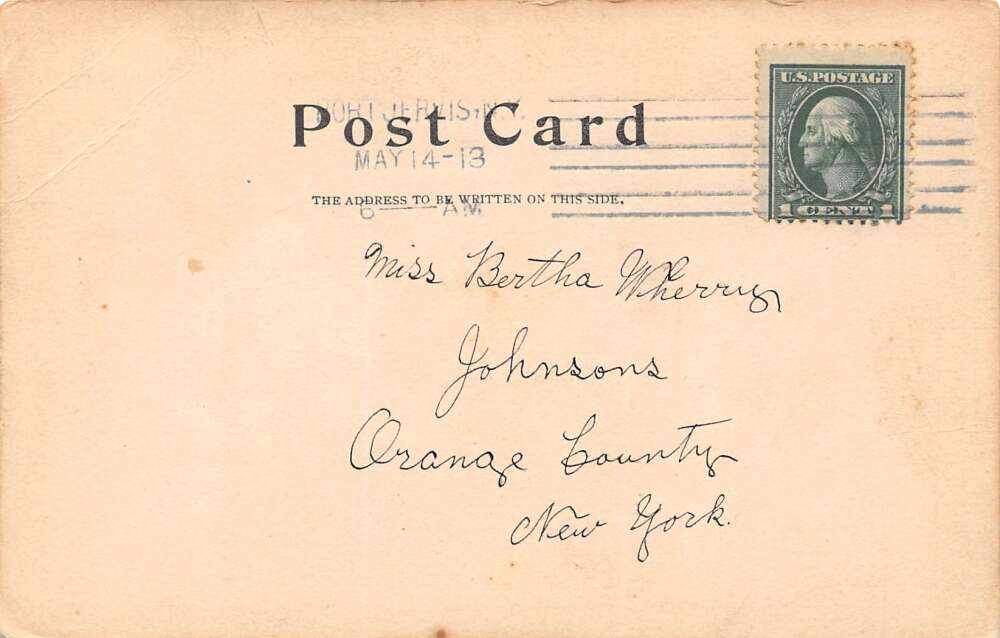 U.S. POSTAGE
1 CENT 1
PORT JERVIS, N.Y.
Post Card
MAY 14-13
THE ADDRESS TO BE WRITTEN ON THIS SIDE.
6 AM
Miss Bertha Wherry
Johnsons
Orange County
New York.